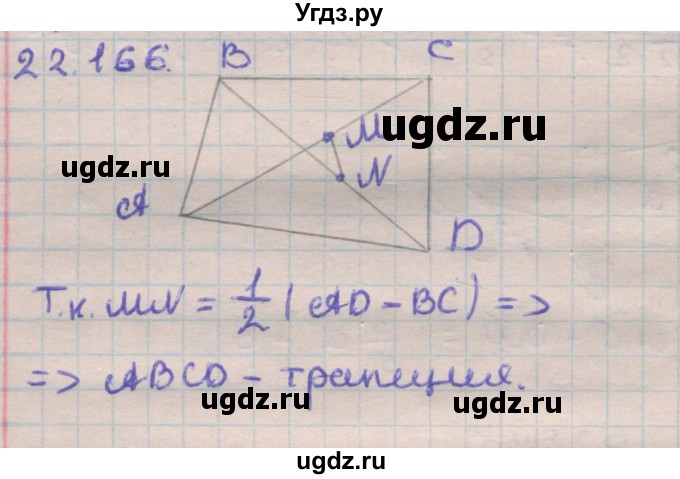 Угдз.ру
22.166.
B
C
M
ugdz.ru
ugdz.ru
N
A
D
Т.к. MN = 1/2 (AD - BC) =>
=> ABCD - трапиция.
ugdz.ru
ugdz.ru
ugdz.ru